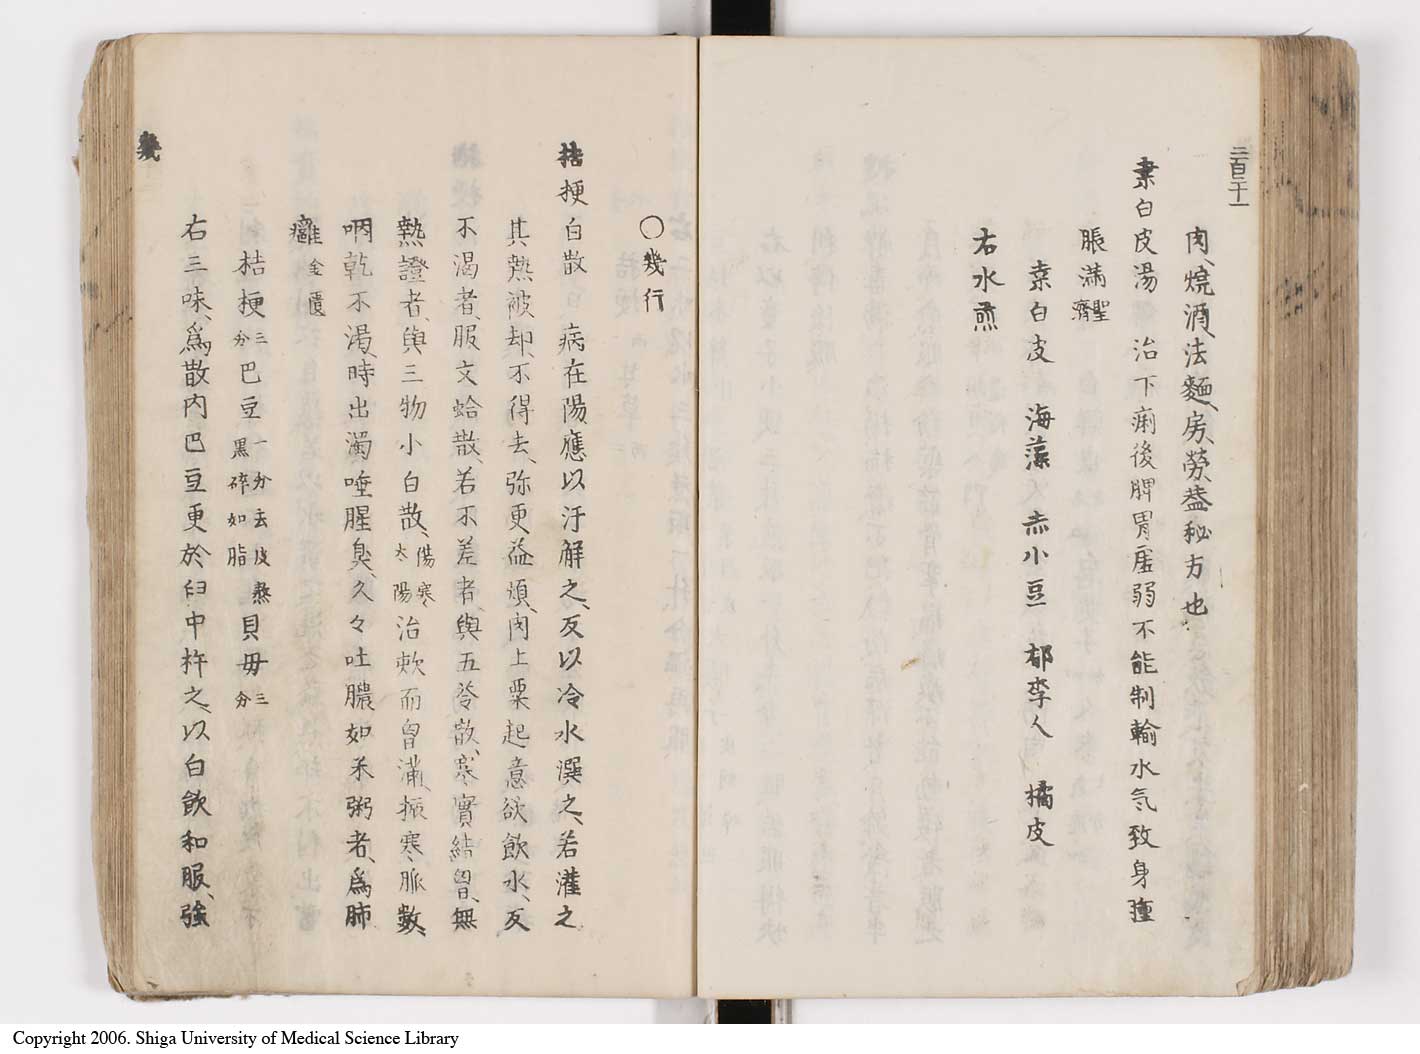 二百二十一
肉、燒酒、法麵、房勞、蓋秘方也
桒白皮湯 治下痢後脾胃虛弱不能制輸水氣致身腫
脹滿 聖濟
桒白皮 海藻 赤小豆 郁李人 橘皮
右水煎
〇幾行
桔梗白散 病在陽、應以汗解之、反以冷水潠之、若灌之
其熱被却、不得去、弥更益煩、肉上粟起意欲飲水、反
不渴者、服文蛤散、若不差者、與五苓散、寒實結胷、無
熱證者、與三物小白散、傷寒太陽 治欬而胷滿、振寒脈數、
咽乾不渴、時出濁唾腥臭、久々吐膿如米粥者、爲肺
癰 金匱
桔梗 三分 巴豆 一分去皮熬黑碎如脂 貝毋 三分
右三味、爲散内巴豆更於臼中杵之、以白飲和服、強
幾
Copyright 2006. Shiga University of Medical Science Library